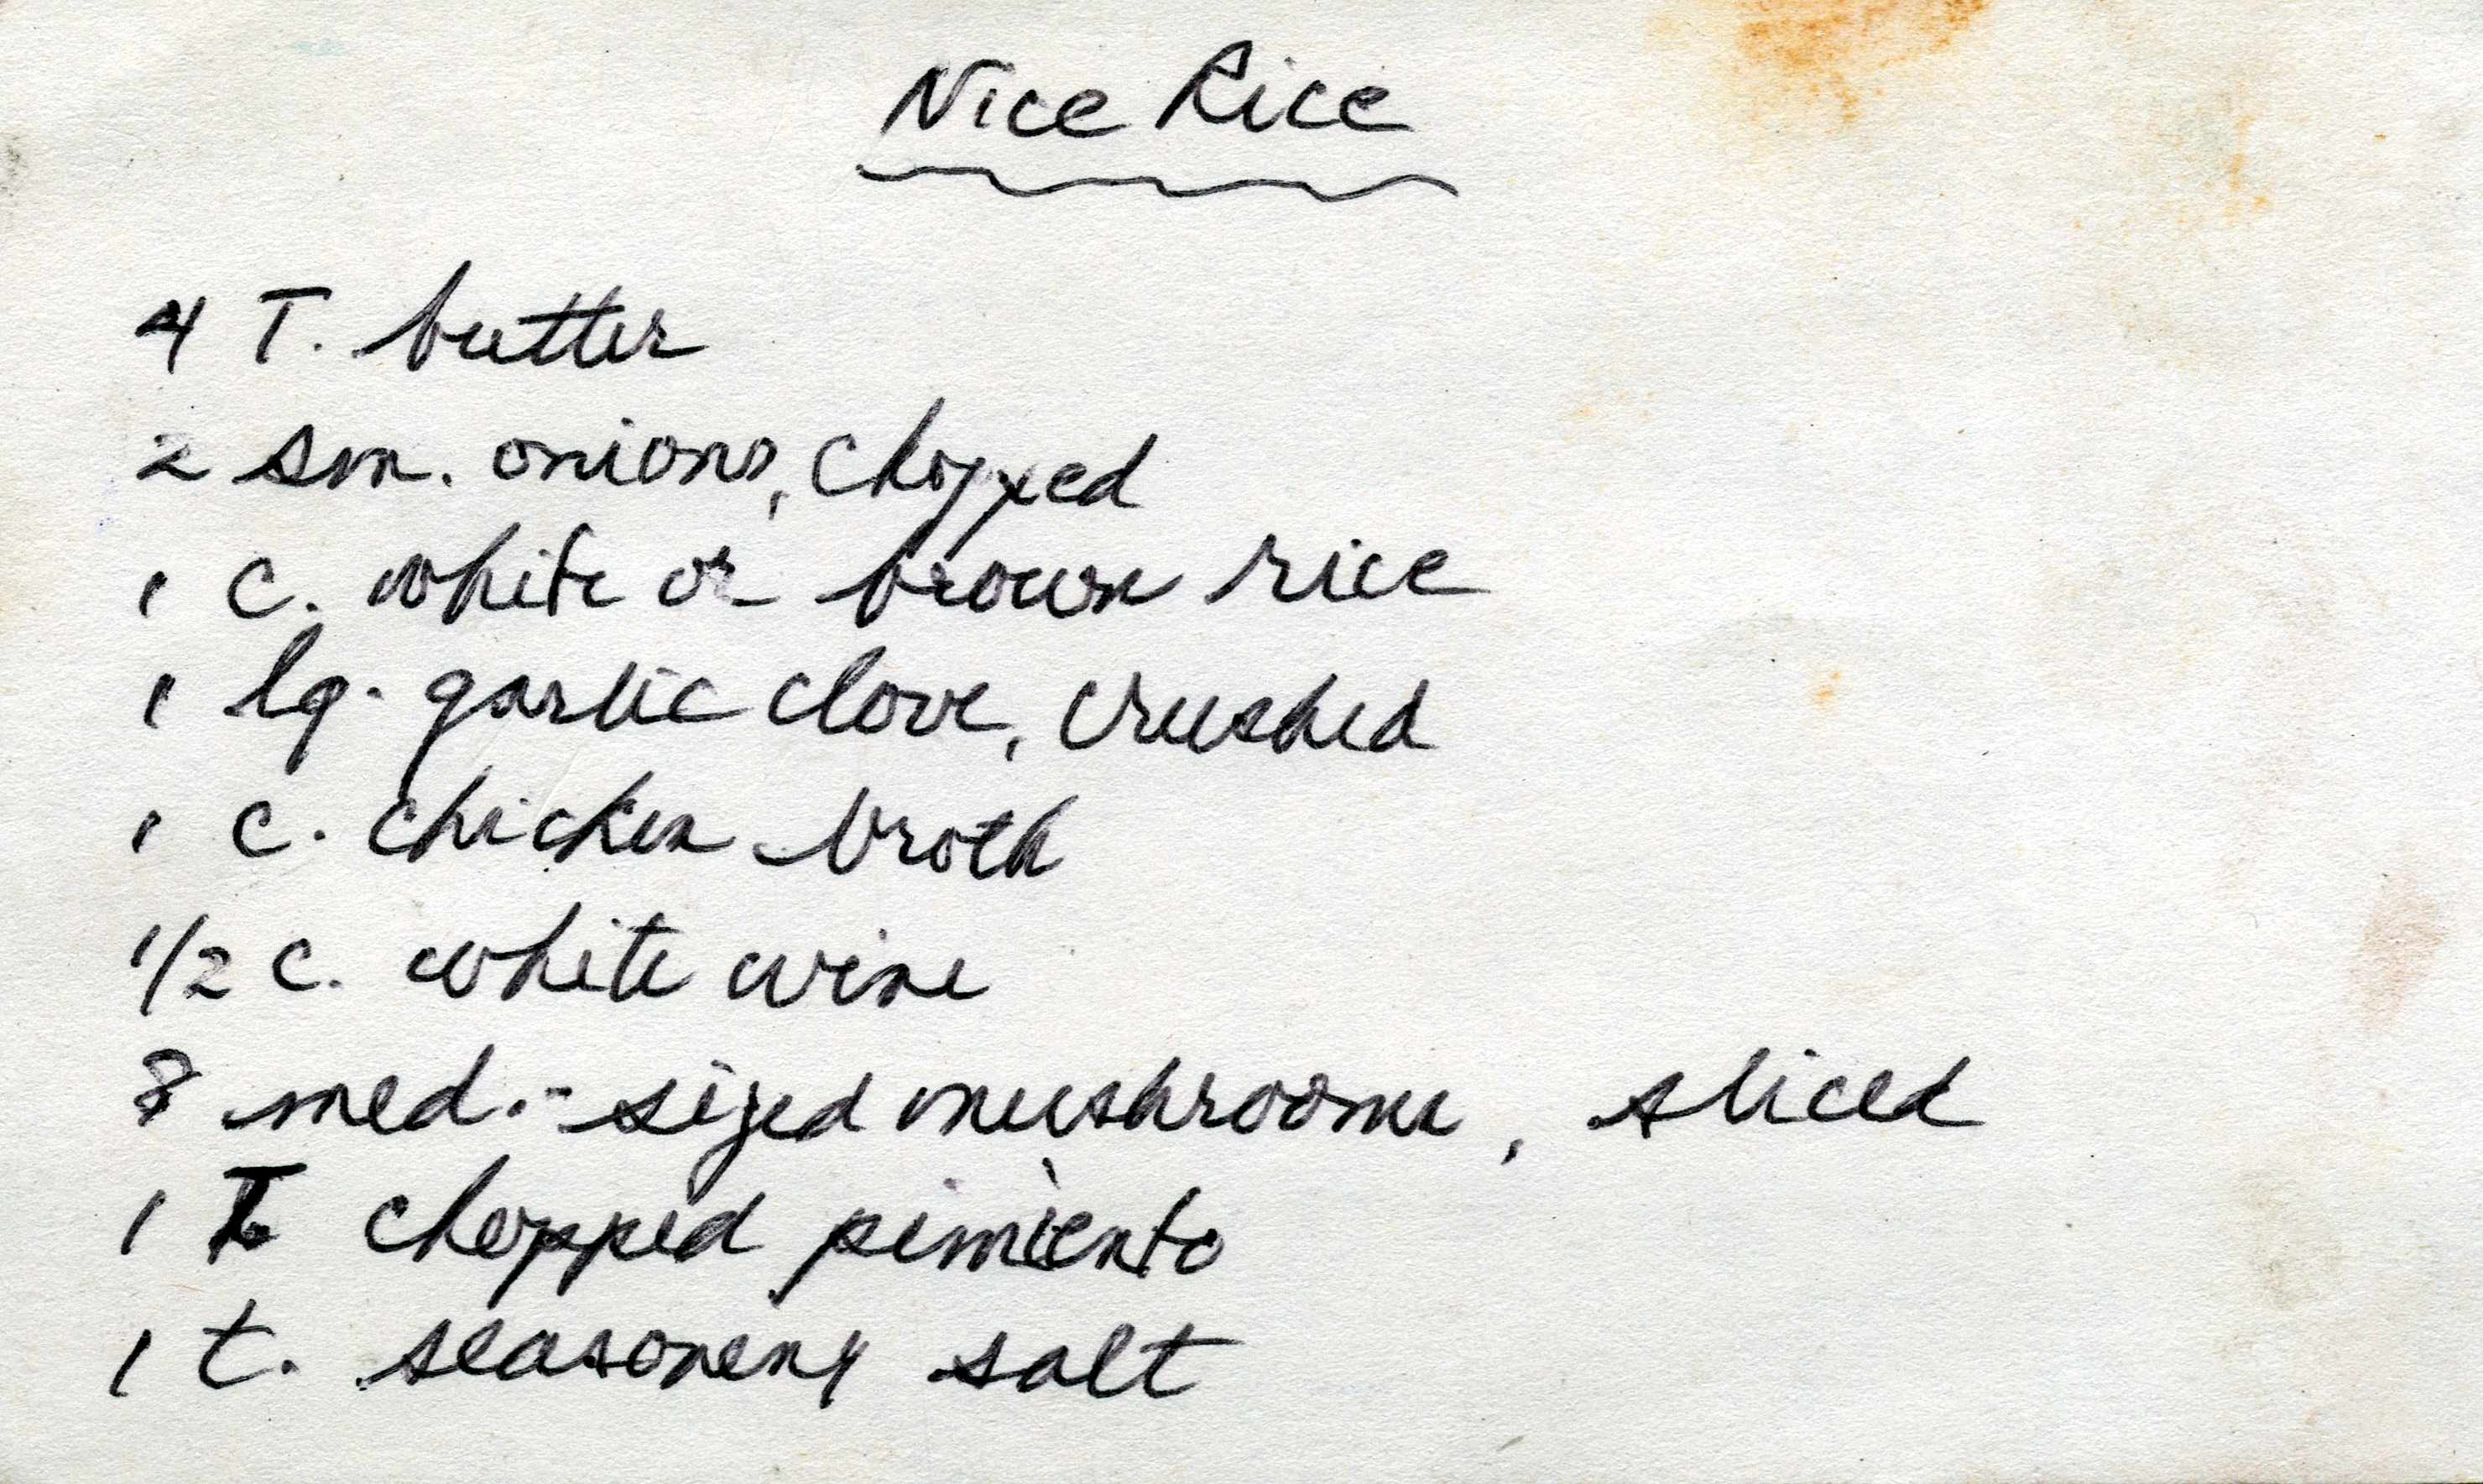 Nice Rice
4 T. butter
2 sm. onions, chopped
1 c. white or brown rice
1 lg. garlic clove, crushed
1 c. chicken broth
1/2 c. white wine
8 med.-sized mushrooms, sliced
1 T chopped pimiento
1 t. seasoning salt